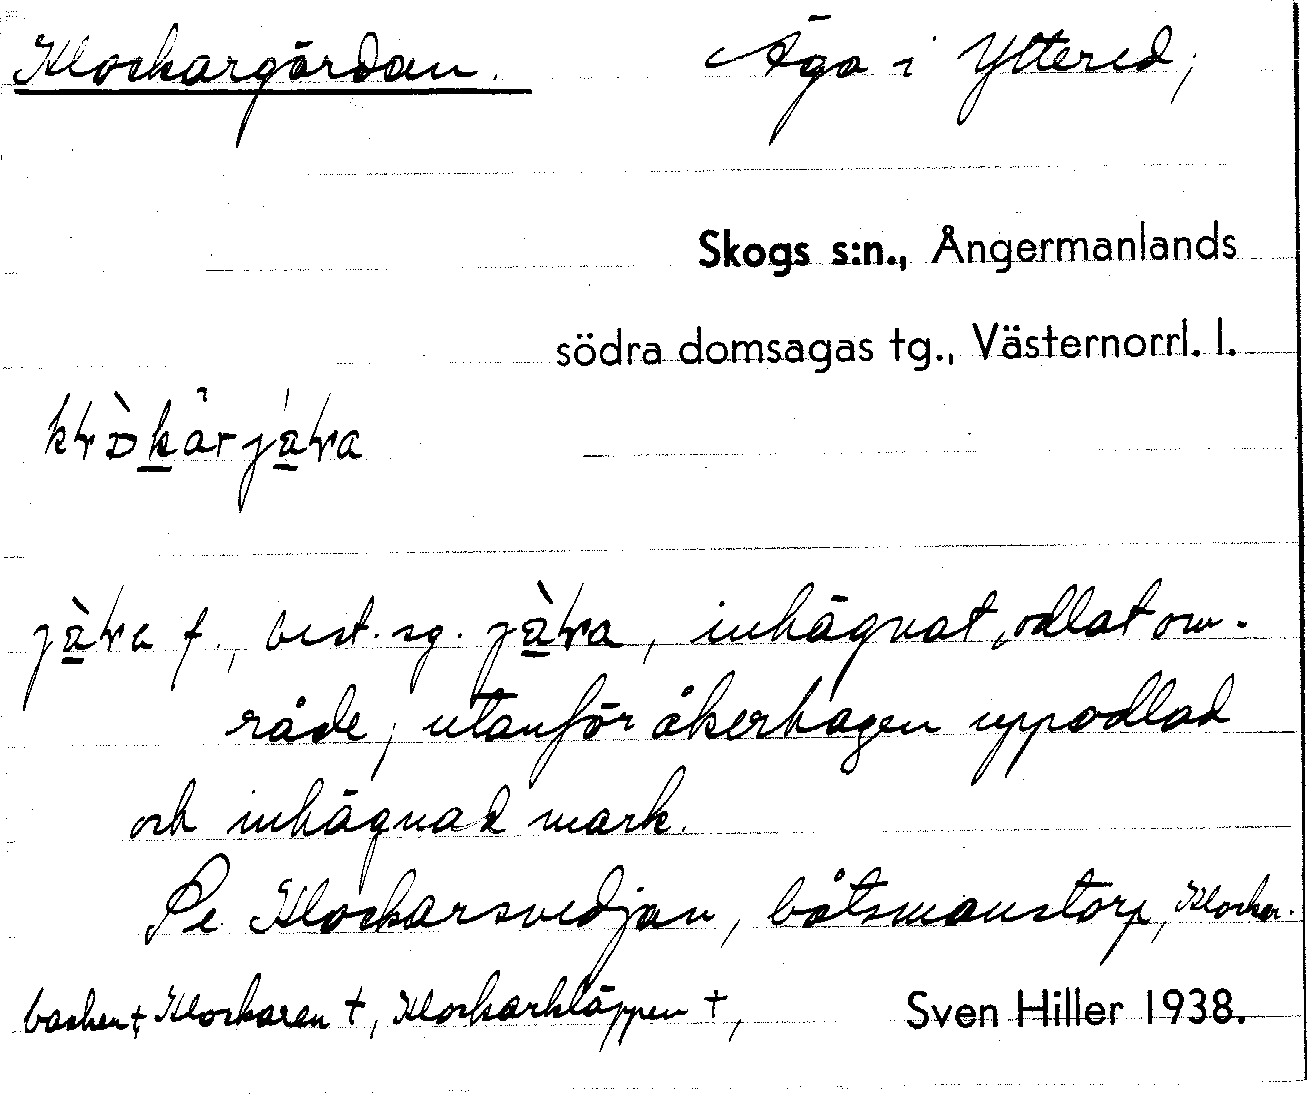 Klockargärdan. Äga i Yttered;
Skogs s:n., Ångermanlands
södra domsagas tg., Västernorrl. l.
jä̀ɽa f., best. sg. jä̀ɽa, inhägnat, odlat om-
råde; utanför åkerhagen uppodlad
och inhägnad mark.
Se Klockarsvedjan, båtsmanstorp, Klockar-
backen †, Klockaren †, Klockarkläppen †,
Sven Hiller 1938.